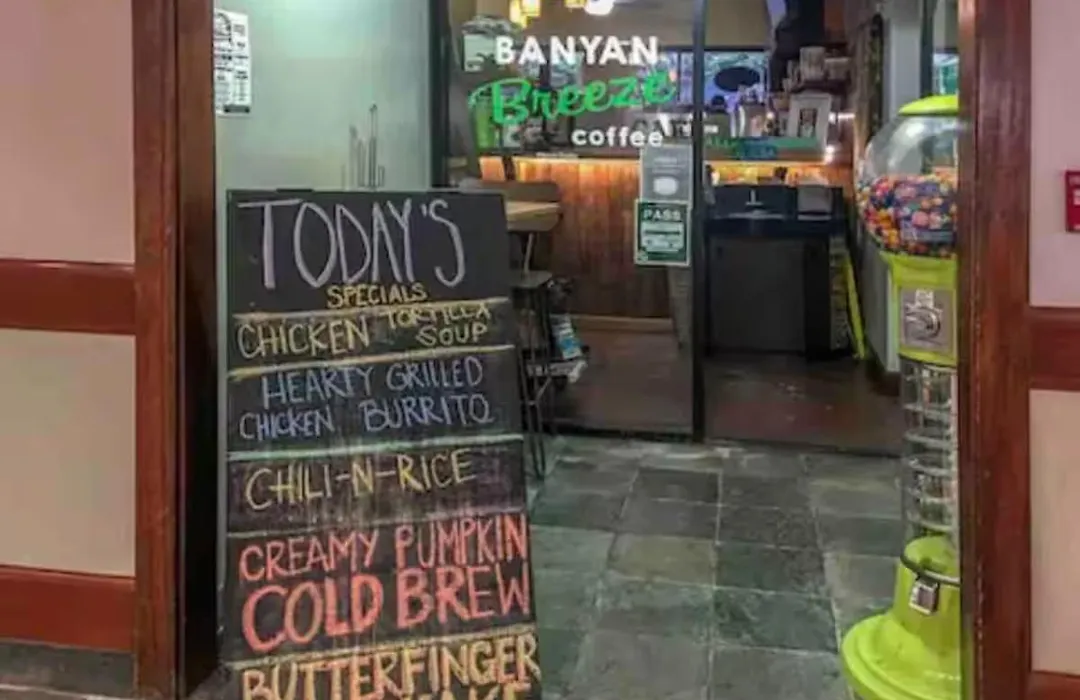 BANYAN
Breeze
coffee
PASS
TODAY'S
SPECIALS
CHICKEN TORTILLA
SOUP
HEARTY GRILLED
CHICKEN BURRITO
CHILI-N-RICE
CREAMY PUMPKIN
COLD BREW
BUTTERFINGER